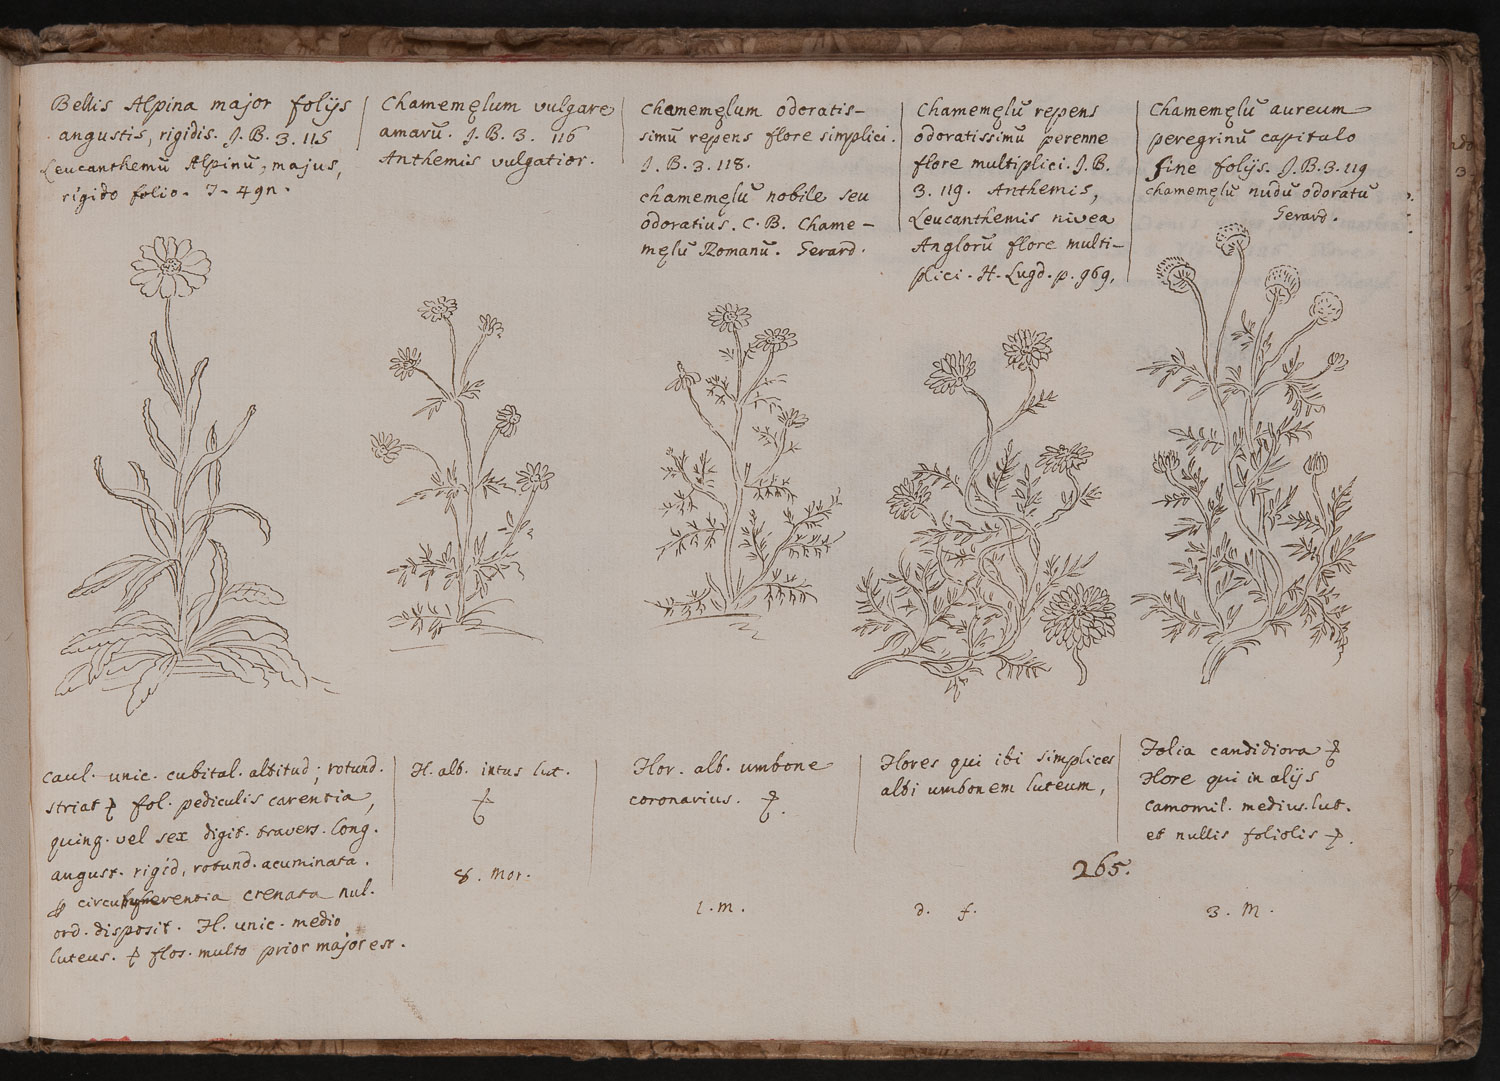 Bellis Alpina major folijs
angustis, rigidis. J. B. 3. 115
Leucanthemū Alpinū, majus,
rigido folio. T. 49n.
Chamemęlum vulgare
amarū. J. B. 3. 116
Anthemis vulgatior.
chamemęlum odoratis-
simū repens flore simplici.
J. B. 3. 118.
chamemęlū nobile seu
odoratius. C. B. Chame-
męlū Romanū. Gerard.
Chamemęlū repens
odoratissimū perenne
flore multiplici. J. B.
3. 119. Anthemis,
Leucanthemis nivea
Anglorū flore multi-
plici. H. Lugd. p. 969.
Chamemęlū aureum
peregrinū capitulo
sine folijs. J. B. 3. 119
chamemęlū nudū odoratū
Gerard.
caul. unic. cubital. altitud; rotund.
striat ‡ fol. pediculis carentia,
quinq. vel sex digit. travers. long.
august. rigid, rotund. acuminata.
circumferentia crenata nul.
ord. disposit. Fl. unic. medio
luteus. ‡ flos. multo prior major est.
Fl. alb. intus lut.
‡
8. Mor.
Flor. alb. umbone
coronarius. ‡.
1. m.
Flores qui ibi simplices
albi umbonem luteum,
265.
d. f.
Folia candidiora ‡
Flore qui in alijs
camomil. medius. lut.
et nullis foliolis ‡.
3. M.